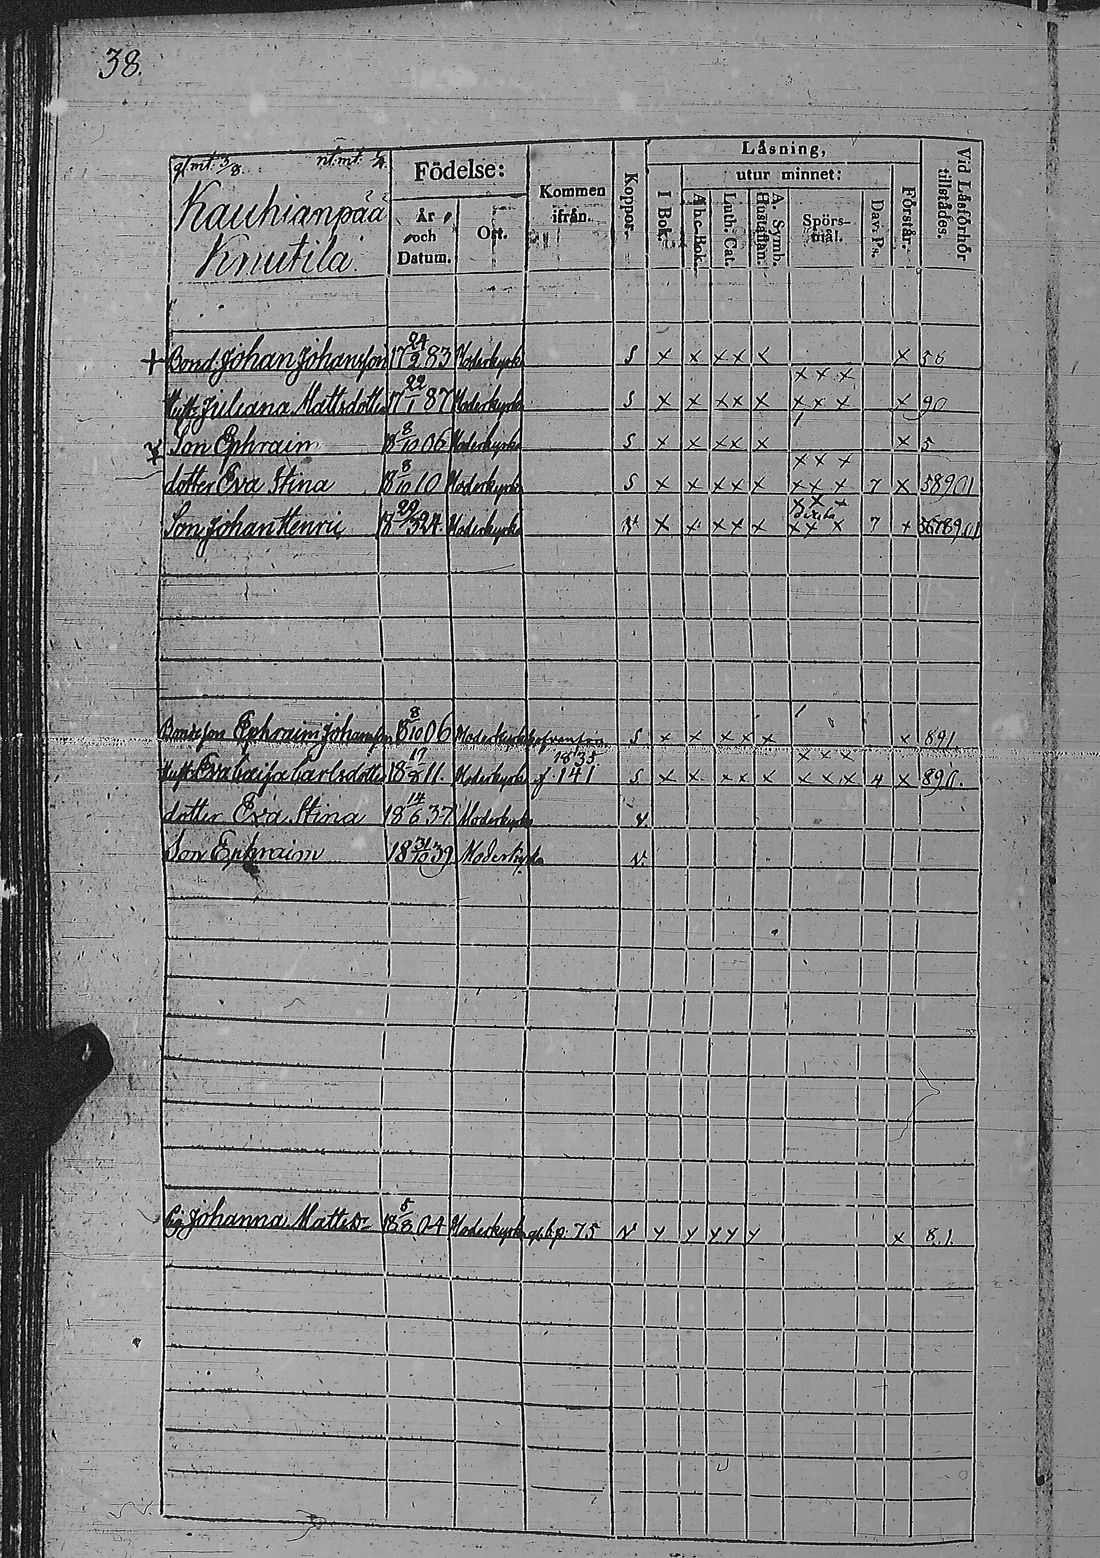 38.
gl. mt. 3/8. nt. mt.
Kauhianpää
Knutila.
Födelse:
År och Datum.
Ort.
Kommen ifrån.
Koppor.
Läsning,
I Bok.
utur minnet:
Abc-Bok.
Luth. Cat.
A. Symb. Hustaflan.
Spörsmål.
Dav. Ps.
Förstår.
Vid Läsförhör tillstädes.
+ Bond. Johan Johansson 17 24/2 83 Moderkyrka S x x x x x x 56
x x x
Hust. Juliana Mattsdotter 17 22/1 87 Moderkyrka S x x x x x x x x x 90
Son Ephraim 18 8/10 06 Moderkyrka S x x x x x x 5
x x x
dotter Eva Stina 18 8/10 10 Moderkyrka S x x x x x x x x 7 x 58901
x x x
Son Johan Henric 18 29/3 24 Moderkyrka v x x x x x x x x 7 x
Bondeson Ephraim Johansson 18 8/10 06 Moderkyrka S x x x x x x 891
1835 x x x
Hust. Eva Caisa Carlsdotter 18 11. Moderkyrka f 141 S x x x x x x x x 4 x 890.
dotter Eva Stina 18 14/6 37 Moderkyrka v
Son Ephraim 18 31/10 39 Moderkyrka v
Johanna Mattsdr 18 5/8 04 Moderkyrka gl. b. p. 75 v y y y y y x 8.1.